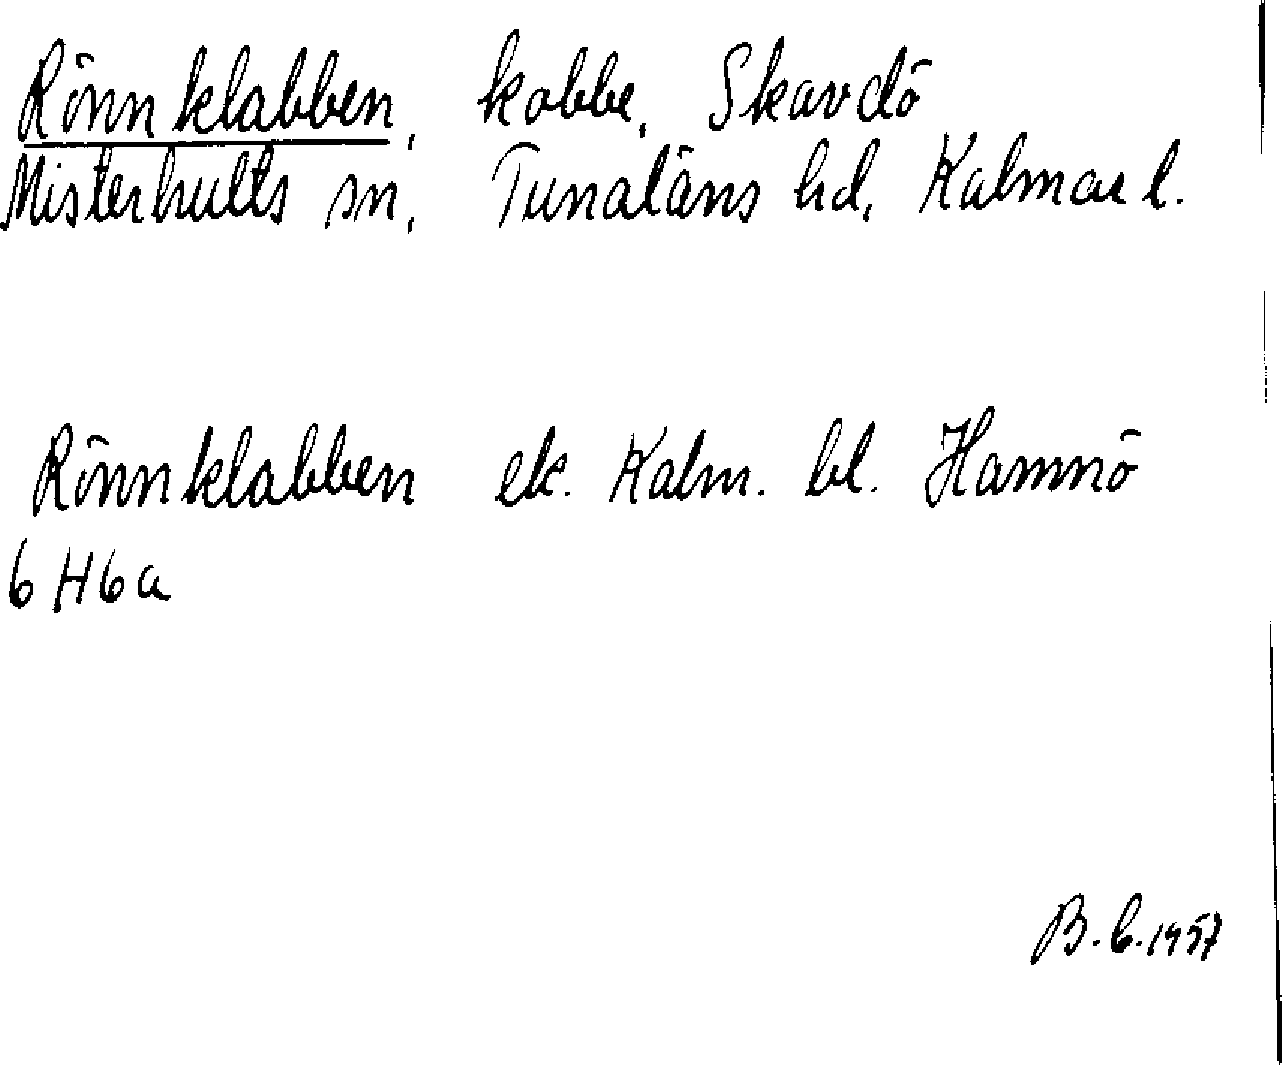 Rönnklabben, kobbe, Skavdö
Misterhults sn, Tunaläns hd, Kalmar l.
Rönnklabben ek. Kalm. bl. Hamnö
6 H 6 a
B. C. 1957